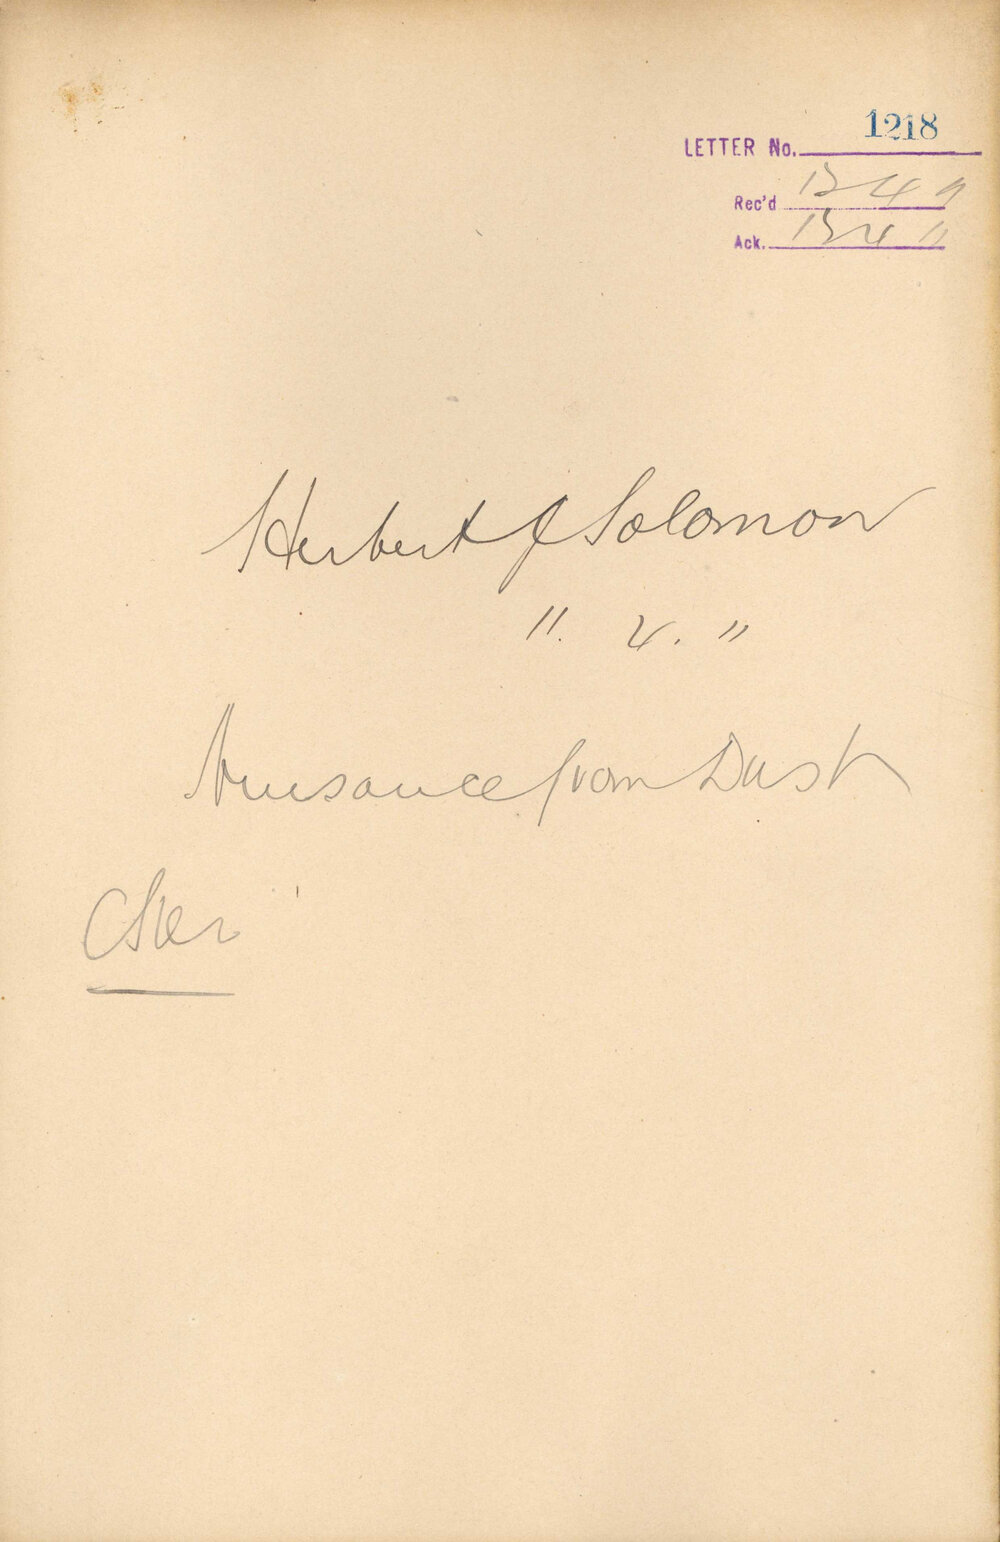 LETTER No. 1218
Rec'd 13 4 11
Ack. 13 4 11
Herbert J Solomon
11. 4. 11
Nuisance from Dust